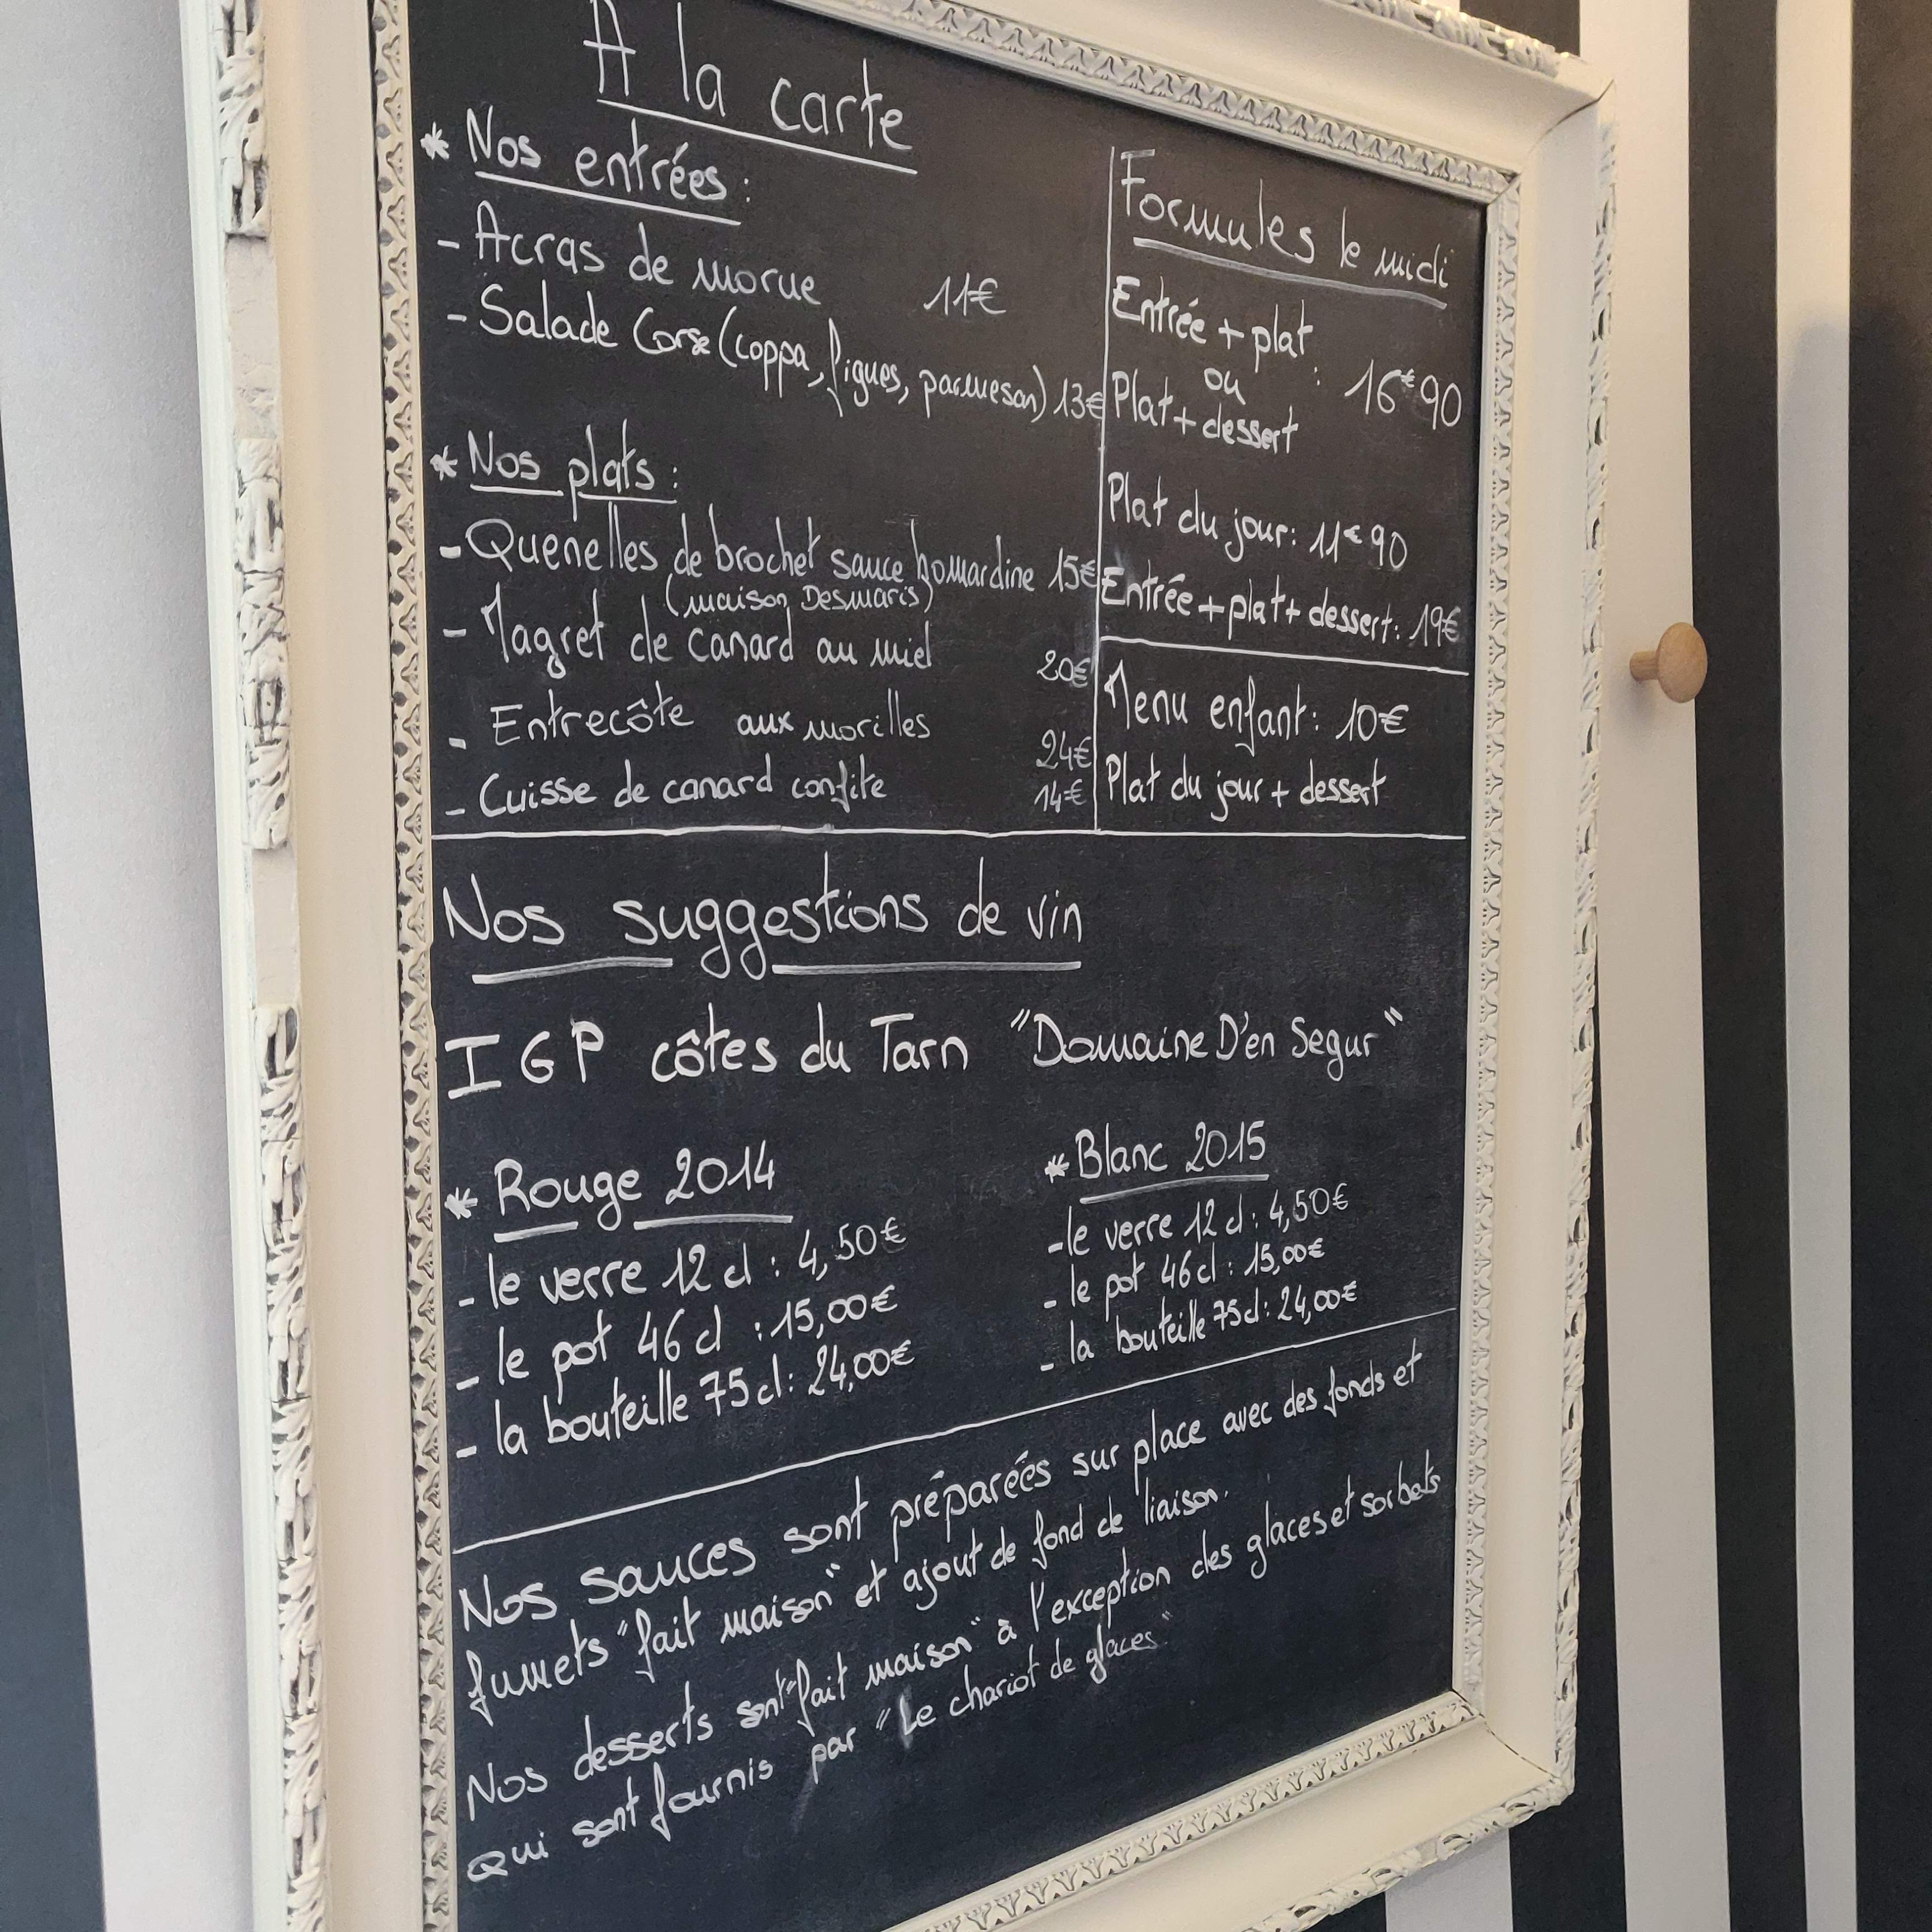 A la carte
* Nos entrées :
- Acras de morue 11€
- Salade Corse (coppa, figues, parmesan) 13€
* Nos plats :
- Quenelles de brochet sauce homardine 15€
(maison Desmaris)
- Magret de canard au miel 20€
- Entrecôte aux morilles 24€
- Cuisse de canard confite 14€
Formules le midi
Entrée + plat
ou : 16€90
Plat + dessert
Plat du jour : 11€90
Entrée + plat + dessert : 19€
Menu enfant : 10€
Plat du jour + dessert
Nos suggestions de vin
IGP côtes du Tarn "Domaine D'en Segur"
* Rouge 2014
- le verre 12 cl : 4,50€
- le pot 46 cl : 15,00€
- la bouteille 75 cl : 24,00€
* Blanc 2015
- le verre 12 cl : 4,50€
- le pot 46 cl : 15,00€
- la bouteille 75 cl : 24,00€
Nos sauces sont préparées sur place avec des fonds et
fumets "fait maison" et ajout de fond de liaison.
Nos desserts sont "fait maison" à l'exception des glaces et sorbets
qui sont fournis par "Le chariot de glaces"